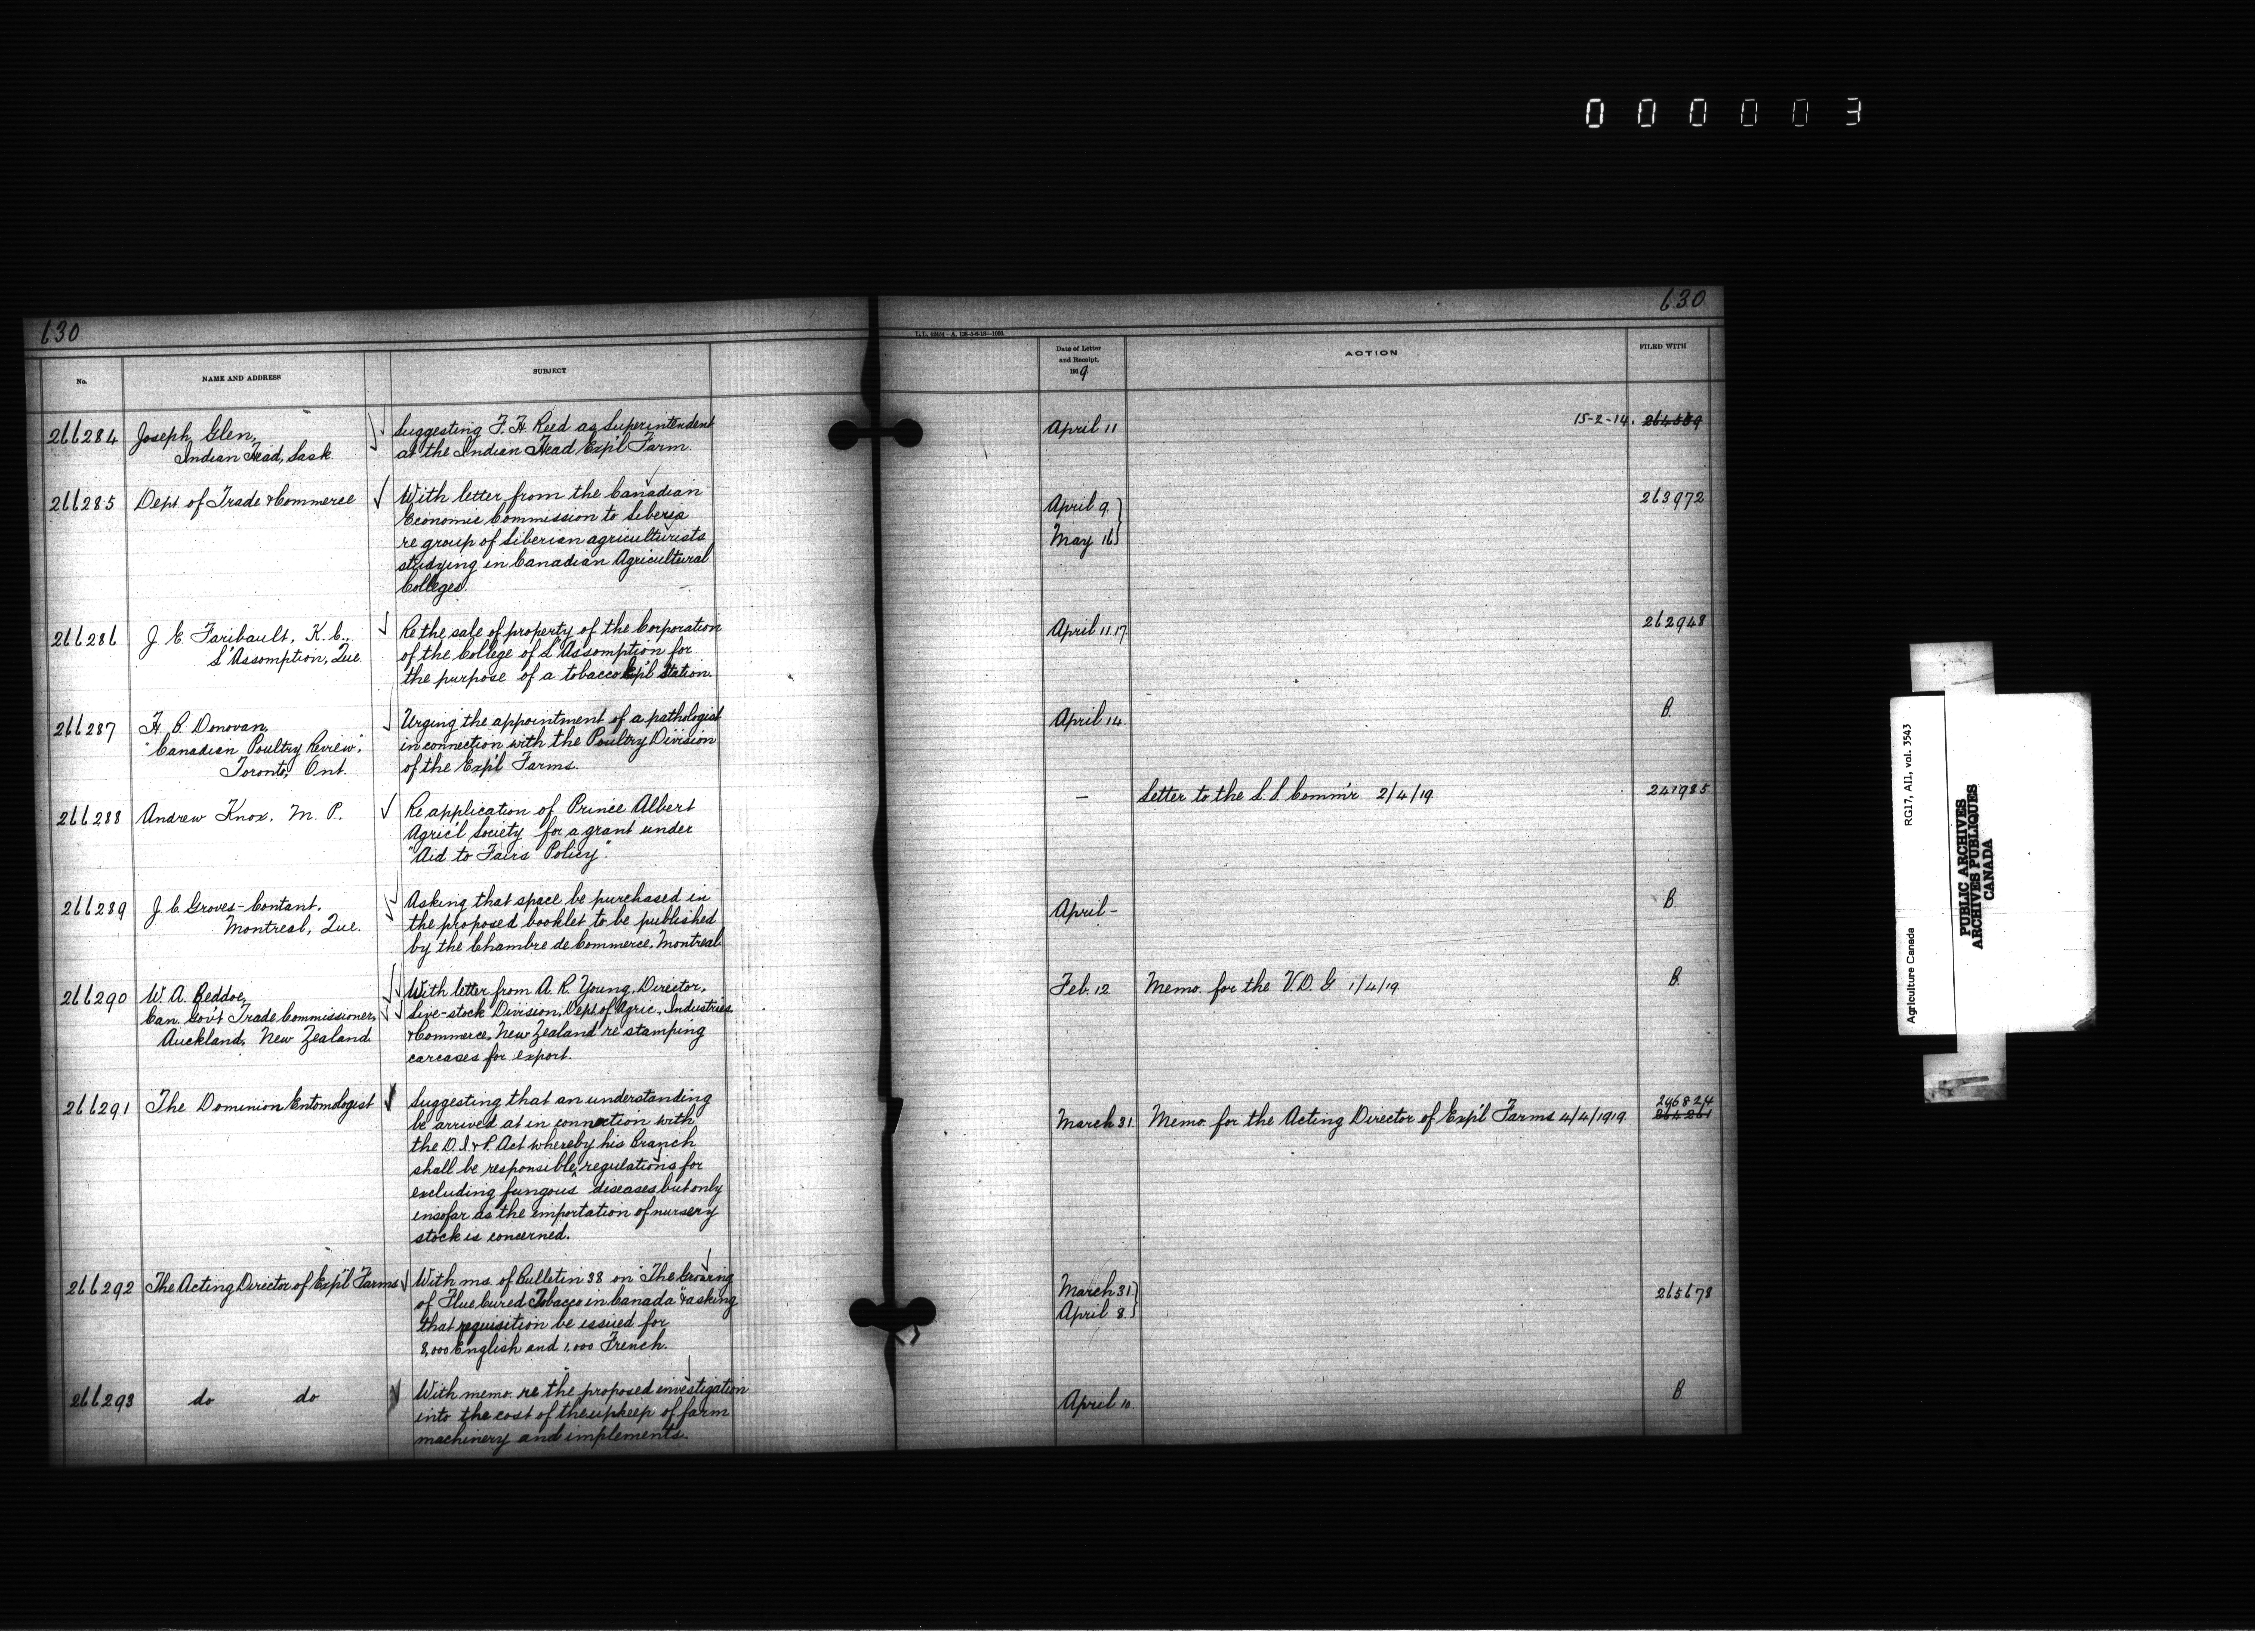 000003
630
No.
NAME AND ADDRESS
SUBJECT
266284
Joseph Glen,
Indian Head, Sask.
Suggesting F. H. Reed as Superintendent
at the Indian Head Exp'l Farm.
266285
Dept of Trade & Commerce
With letter from the Canadian
Economic Commission to Siberia
re group of Siberian agriculturists
studying in Canadian Agricultural
Colleges.
266286
J. E. Faribault, K. C.,
L'Assomption, Que.
Re the sale of property of the Corporation
of the College of L'Assomption for
the purpose of a tobacco Exp'l Station.
266287
H. B. Donovan,
"Canadian Poultry Review",
Toronto, Ont.
Urging the appointment of a pathologist
in connection with the Poultry Division
of the Exp'l Farms.
266288
Andrew Knox, M. P.,
Re application of Prince Albert
Agric'l Society for a grant under
"Aid to Fairs Policy".
266289
J. C. Groves-Contant,
Montreal, Que.
Asking that space be purchased in
the proposed booklet to be published
by the Chambre de Commerce, Montreal.
266290
W. A. Beddoe,
Can. Gov't Trade Commissioner,
Auckland, New Zealand.
With letter from A. R. Young, Director,
Live-stock Division, Dept of Agric., Industries
& Commerce, New Zealand re stamping
carcases for export.
266291
The Dominion Entomologist
Suggesting that an understanding
be arrived at in connection with
the D. I. & P. Act whereby his Branch
shall be responsible, regulations for
excluding fungous diseases but only
insofar as the importation of nursery
stock is concerned.
266292
The Acting Director of Exp'l Farms
With ms. of Bulletin 38 on "The Growing
of Flue Cured Tobacco in Canada" & asking
that requisition be issued for
8,000 English and 1,000 French.
266293
do do
With memo. re the proposed investigation
into the cost of the upkeep of farm
machinery and implements.
630
L.L. 42434—A. 128-5-6-18—1000.
Date of Letter
and Receipt.
1919.
ACTION
FILED WITH
April 11
15-2-14.
April 9.
May 16
263972
April 11.17.
262948
April 14.
B.
—
Letter to the L. S. Comm'r 2/4/19
241985
April -
B.
Feb. 12
Memo. for the V. D. G. 1/4/19
B.
March 31.
Memo. for the Acting Director of Exp'l Farms 4/4/1919.
246824
264261
March 31.
April 8.
265678
April 10.
B
Agriculture Canada
RG17, AII, vol. 3543
PUBLIC ARCHIVES
ARCHIVES PUBLIQUES
CANADA